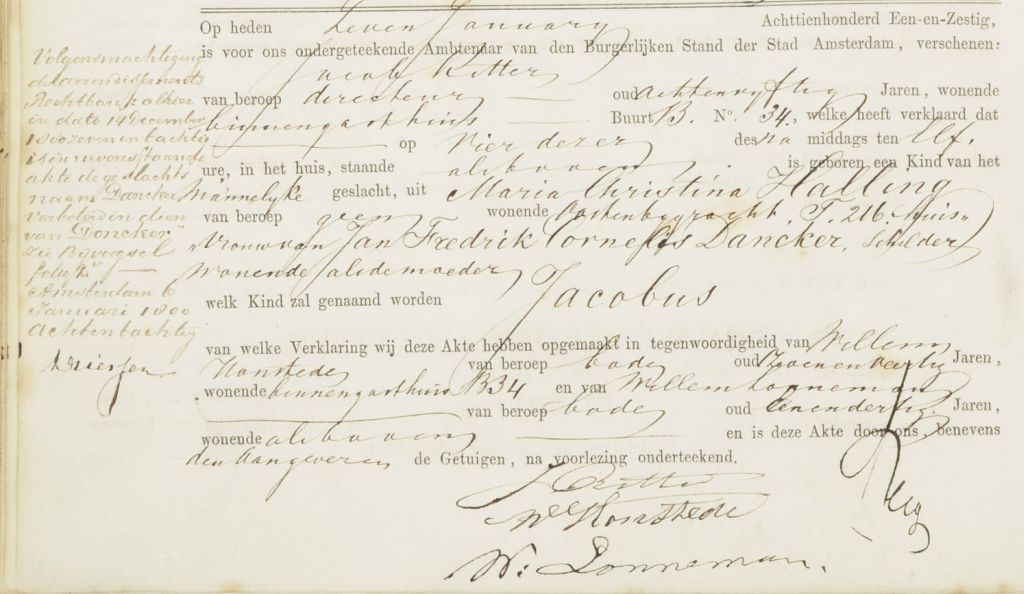 Op heden Zeven January Achttienhonderd Een-en-Zestig,
is voor ons ondergeteekende Ambtenaar van den Burgerlijken Stand der Stad Amsterdam, verschenen:
Jacob Ritter
van beroep directeur oud achtenvyftig Jaren, wonende
binnengasthuis Buurt B. No. 34, welke heeft verklaard dat
op Vier dezer des na middags ten Elf
ure, in het huis, staande alsboven is geboren een Kind van het
mannelyke geslacht, uit Maria Christina Halling
van beroep geen wonende Oostenburgracht, T. 216. huis-
vrouw van Jan Fredrik Cornelis Dancker, Schilder
wonende als de moeder
welk Kind zal genaamd worden Jacobus
van welke Verklaring wij deze Akte hebben opgemaakt in tegenwoordigheid van Willem
Honstede van beroep bode oud Jaren,
wonende binnengasthuis B34 en van Willem Lonneman
van beroep bode oud eenendertig Jaren,
wonende alsboven en is deze Akte door ons, benevens
den Aangeveren de Getuigen, na voorlezing onderteekend.
J Ritter
W Honstede
W: Lonneman.
Volgens machtiging
der arrondissements
Rechtbank alhier
in dato 14 December
1800 zeven en tachtig
is in nevenstaande
akte de geslachts
naam Dancker
verbeterd in dien
van "Doncker"
Zie Bijvoegsel
folio
Amsterdam 6
Januari 1800
achtentachtig